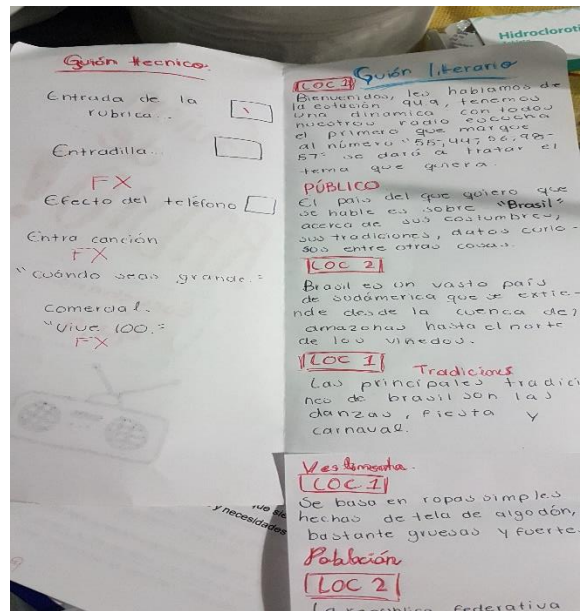 Hidrocloroti
Guión tecnico.
Entrada de la
rubrica...
Entradilla...
FX
Efecto del teléfono
Entra canción
FX
"cuándo seas grande."
comercial.
"Vive 100."
FX
y necesidades
Guión literario
LOC 1
Bienvenidos, les hablamos de
la estación 94.9, tenemos
una dinamica con todos
nuestros radio escucha
el primero que marque
al número "55, 44, 56, 98-
57" se dará a tratar el
tema que quiera.
PÚBLICO
El país del que quiero que
se hable es sobre "Brasil"
acerca de sus costumbres,
sus tradiciones, datos curio-
sos entre otras cosas.
LOC 2
Brasil es un vasto país
de sudámerica que se extie-
nde desde la cuenca del
amazonas hasta el norte
de los viñedos.
LOC 1
Tradiciones
Las principales tradici
nes de brasil son las
danzas, fiesta y
carnaval.
Vestimenta.
LOC 1
Se basa en ropas simples
hechas de tela de algodón,
bastante gruesas y fuerte.
Población
LOC 2
La republica federativa